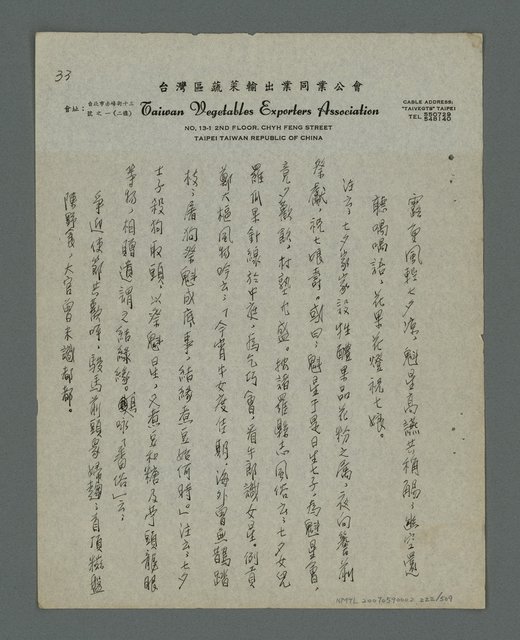 33
台灣區蔬菜輸出業同業公會
會址：台北市赤峰街十三號之一(二樓)
Taiwan Vegetables Exporters Association
CABLE ADDRESS:
"TAIVEGTS" TAIPEI
TEL 550729
548140
NO, 13-1 2ND FLOOR, CHYH FENG STREET
TAIPEI TAIWAN REPUBLIC OF CHINA
露重風輕七夕涼，魁星高讌共稱觴，幽空還
聽喁喁語，花果花燈祝七娘。
注云：七夕家家設牲醴果品花粉之屬，夜向簷前
祭獻，祝七娘壽。或曰：魁星于是日生士子，為魁星會，
竟夕歡飲，村塾尤盛。按諸羅縣志風俗云：七夕女兒
羅瓜果針線於中庭，為乞巧會，看牛郎織女星。例貢
鄭大樞風物吟云：「今宵牛女度佳期，海外曾無鵲踏
枝，屠狗祭魁成底事，結緣煮豆始何時。」注云：七夕
士子殺狗取頭，以祭魁星，又煮豆和糖及芋頭龍眼
等物，相贈遺謂之結緣。「番俗」云：
爭迎使節共歡呼，驄馬前頭眾婦趨，首頂糍盤
陳野食，大官曾未識都都。
NMTL 20070590002 222/509